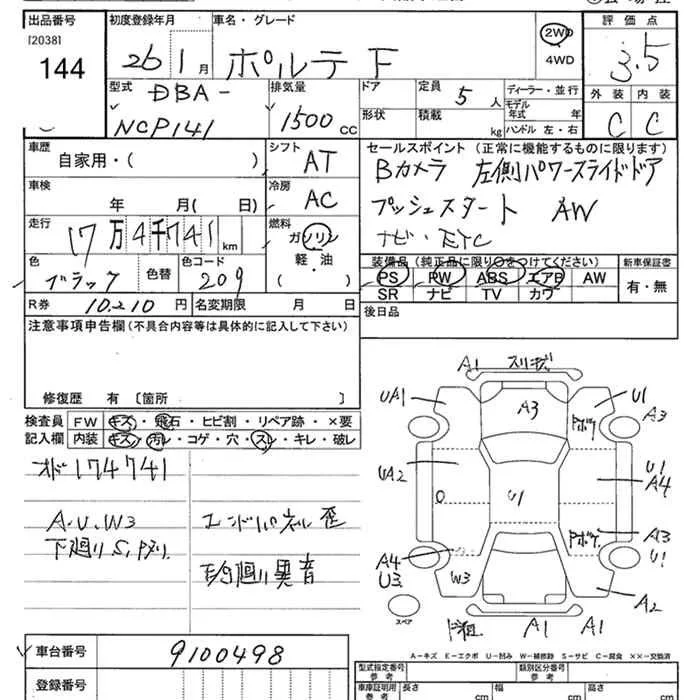 出品番号 初度登録年月 車名・グレード 評価点
[2038]
144 26年1月 ポルテ F 2WD 4WD 3.5
型式 DBA- 排気量 ドア 定員 5人 ディーラー・並行 外装 内装
NCP141 1500CC 形状 積載 kg モデル年式 年 ハンドル 左・右 C C
車歴 シフト セールスポイント(正常に機能するものに限ります)
自家用・( ) AT Bカメラ 左側パワースライドドア
車検 冷房 プッシュスタート AW
年 月( 日) AC ナビ・ETC
走行 17万4千741km 燃料 ガソリン 軽・油 ( )
装備品(純正品に限り○をつけてください) 新車保証書
色 色替 色コード PS PW ABS エアB AW 有・無
ブラック 209 SR ナビ TV カワ
R券 10,210円 名変期限 月 日 後日品
注意事項申告欄(不具合内容等は具体的に記入して下さい)
修復歴 有 〔箇所 〕
検査員 FW キズ・飛石・ヒビ割・リペア跡・×要
記入欄 内装 キズ・汚レ・コゲ・穴・スレ・キレ・破レ
オド174741
A.U.W3 エンドパネル歪
下廻りS,
異音
A1
UA1 A3 U1 A3
UA2 U1 U1 A4
A4 U3 W3 A3 U1
A1 A1 A2
スペア
A-キズ E-エクボ U-凹み W-補修跡 S-サビ C-腐食 ××-交換済
車台番号 9100498 型式指定番号 参考 類別区分番号 参考
登録番号 車庫証明用 参考 長さ cm 幅 cm 高さ cm